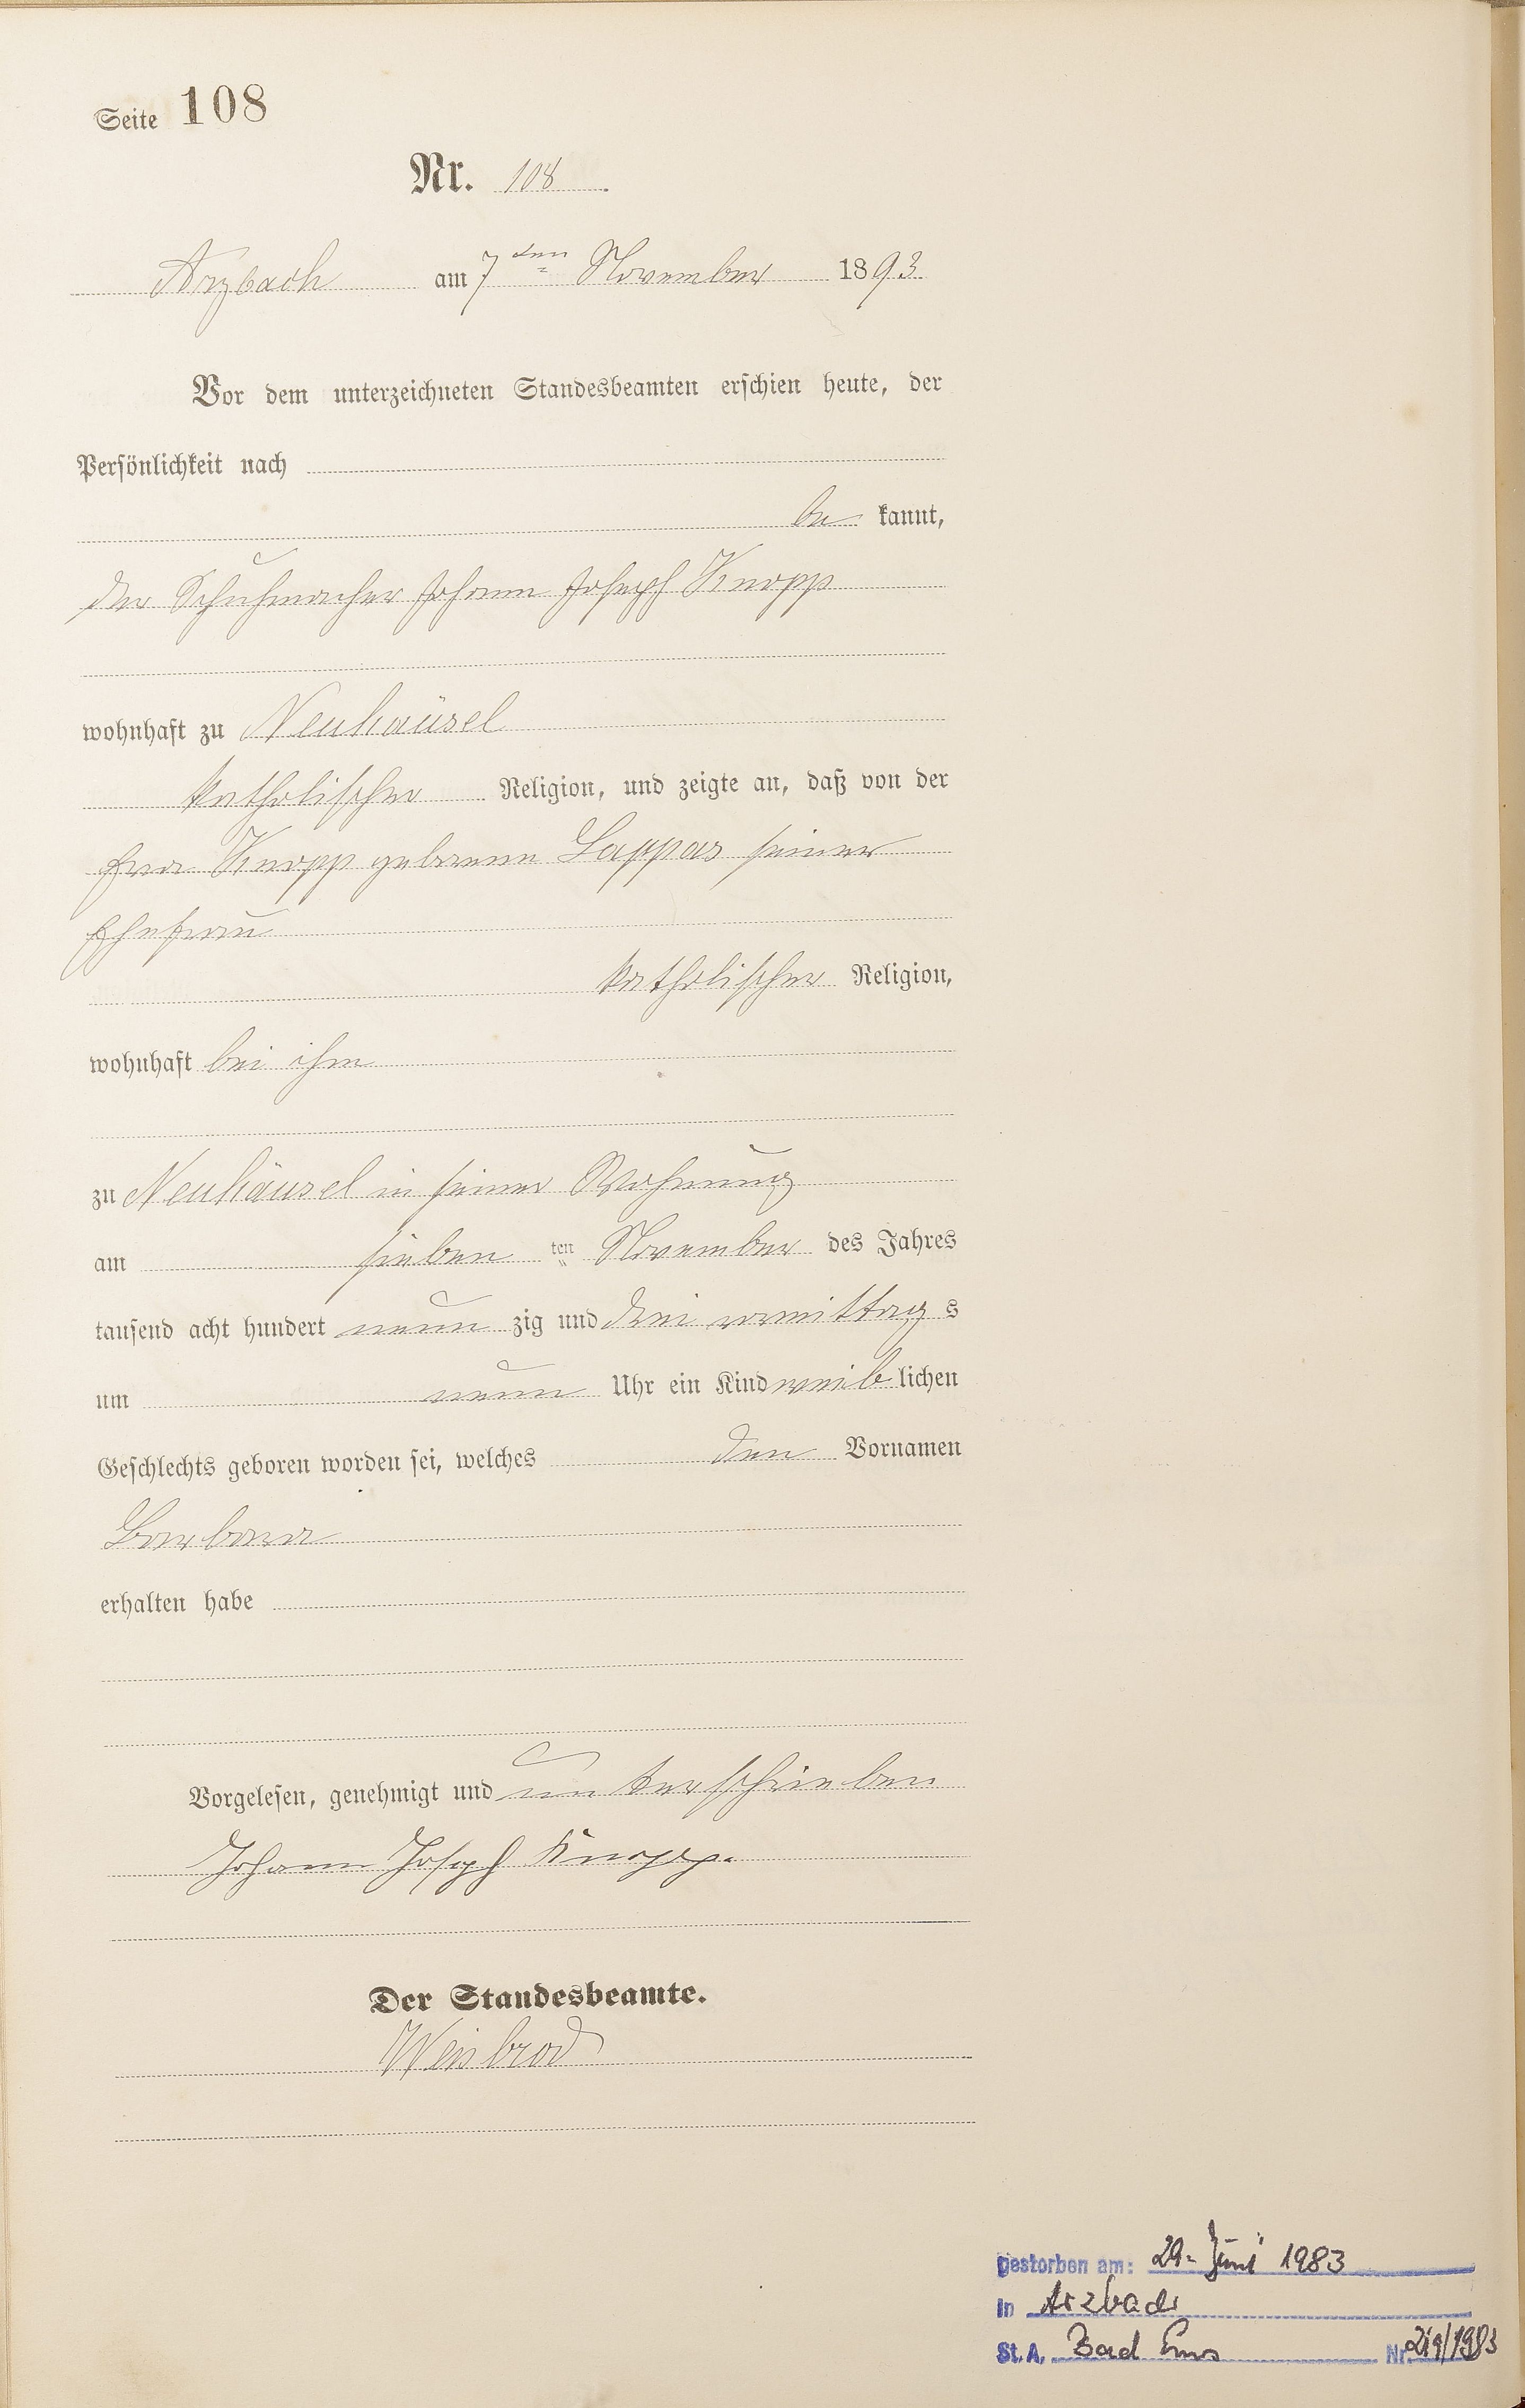 Seite 108
Nr. 108
Arzbach am 7ten November 1893
Vor dem unterzeichneten Standesbeamten erschien heute, der
Persönlichkeit nach
be kannt,
der Schuhmacher Johann Joseph Knopp
wohnhaft zu Neuhäusel
katholischer Religion, und zeigte an, daß von der
Eva Knopp geborene Lappas seiner
Ehefrau
katholischer Religion,
wohnhaft bei ihm
zu Neuhäusel in seiner Wohnung
am sieben ten November des Jahres
tausend acht hundert neun zig und drei vormittag s
um neun Uhr ein Kind weib lichen
Geschlechts geboren worden sei, welches den Vornamen
Barbara
erhalten habe
Vorgelesen, genehmigt und unterschrieben
Johann Joseph Knopp.
Der Standesbeamte.
Weisbrod
gestorben am: 29. Juni 1983
in Arzbach
St. A. Bad Ems Nr. 219/1983